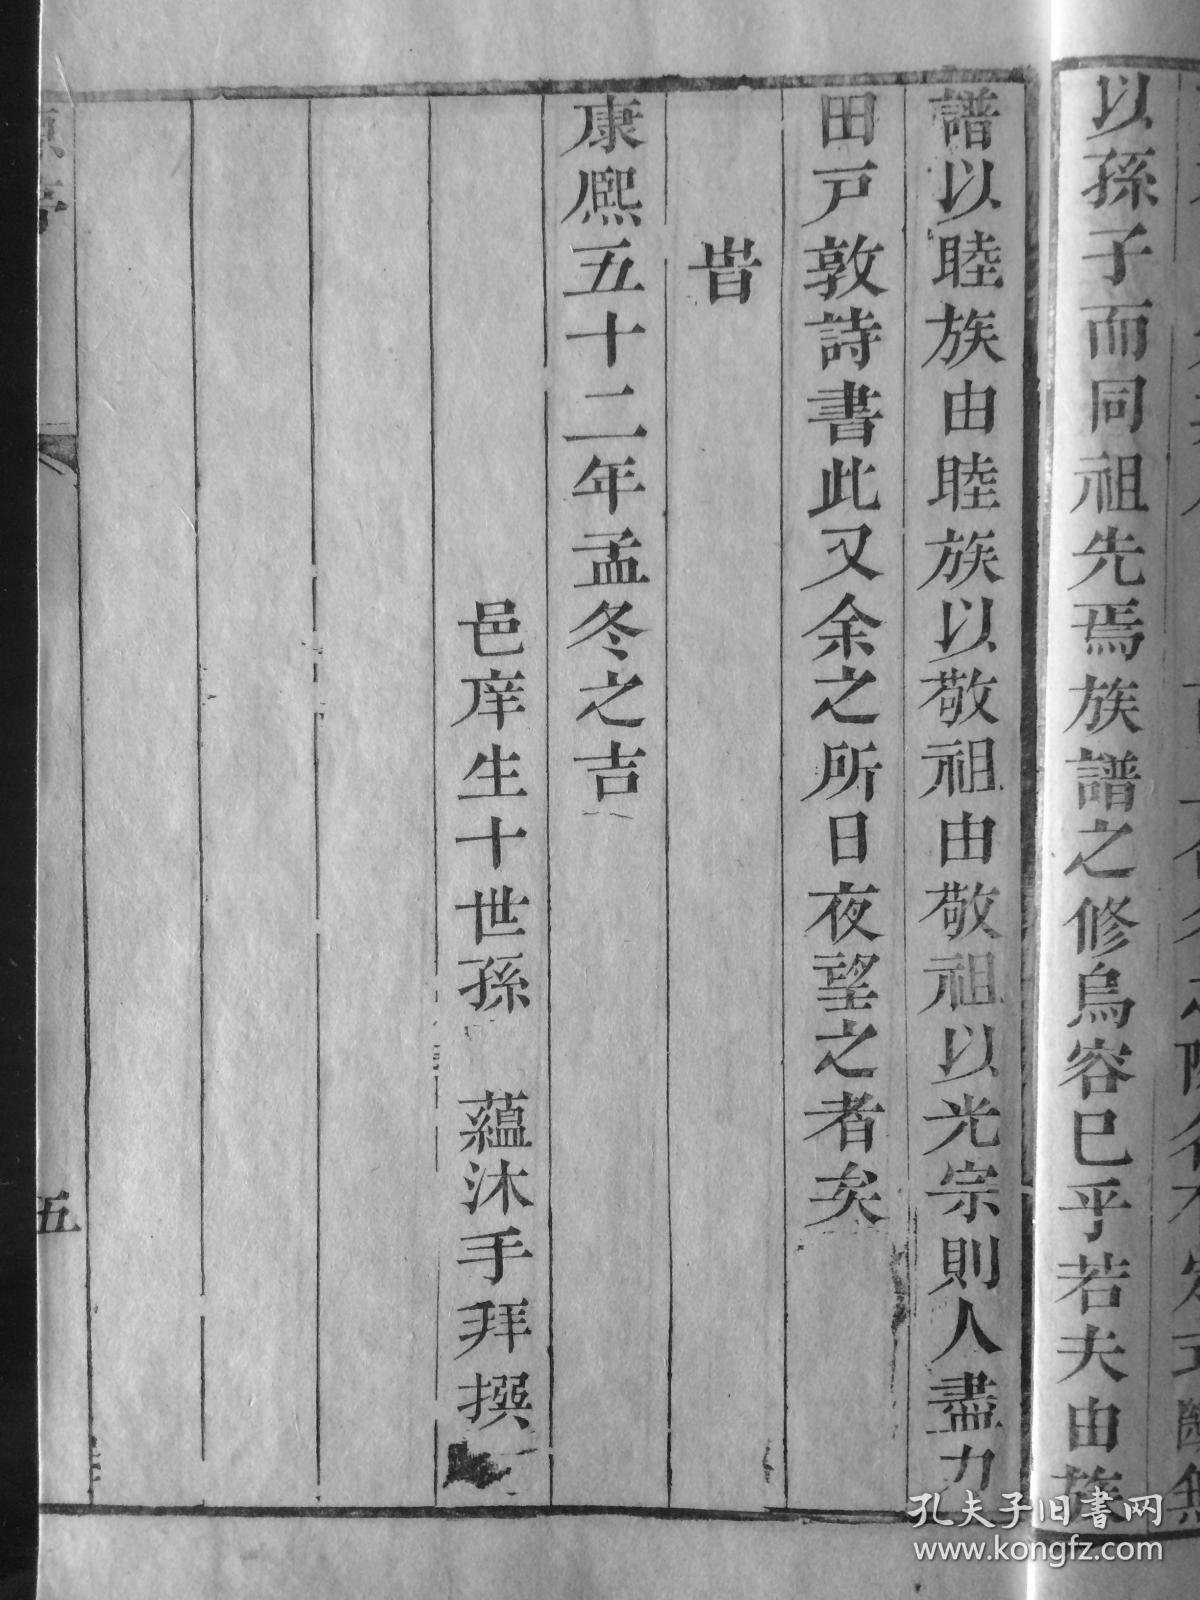 以孫子而同祖先焉族譜之修烏容已乎若夫由族
譜以睦族由睦族以敬祖由敬祖以光宗則人盡力
田戸敦詩書此又余之所日夜望之者矣
旹
康熙五十二年孟冬之吉
邑庠生十世孫 蘊沐手拜撰
五
孔夫子旧书网
www.kongfz.com